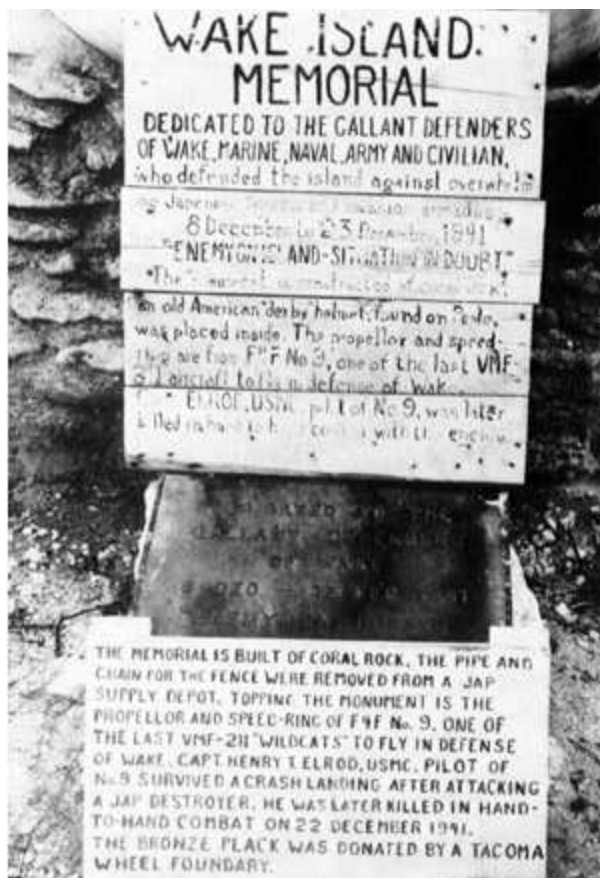 WAKE ISLAND.
MEMORIAL
DEDICATED TO THE GALLANT DEFENDERS
OF WAKE, MARINE, NAVAL, ARMY AND CIVILIAN,
who defended the island against overwhelm
8 December to 23 December, 1891
"ENEMY ON ISLAND-SITUATION IN DOUBT."
The
an old American "derby" helmet, found on
was placed inside. The propellor and speed-
ring are from F4F No 9, one of the last VMF
aircraft to fly in defense of Wake.
ELROD, USMC, pilot of No 9, was later
killed in hand to hand combat with the enemy.
GALLANT DEFENDERS
OF WAKE
THE MEMORIAL IS BUILT OF CORAL ROCK, THE PIPE AND
CHAIN FOR THE FENCE WERE REMOVED FROM A JAP
SUPPLY DEPOT. TOPPING THE MONUMENT IS THE
PROPELLOR AND SPEED-RING OF F4F No. 9. ONE OF
THE LAST VMF-211 "WILDCATS" TO FLY IN DEFENSE
OF WAKE. CAPT. HENRY T. ELROD, USMC, PILOT OF
No 9 SURVIVED A CRASH LANDING AFTER ATTACKING
A JAP DESTROYER. HE WAS LATER KILLED IN HAND-
TO-HAND COMBAT ON 22 DECEMBER 1941.
THE BRONZE PLACK WAS DONATED BY A TACOMA
WHEEL FOUNDARY.